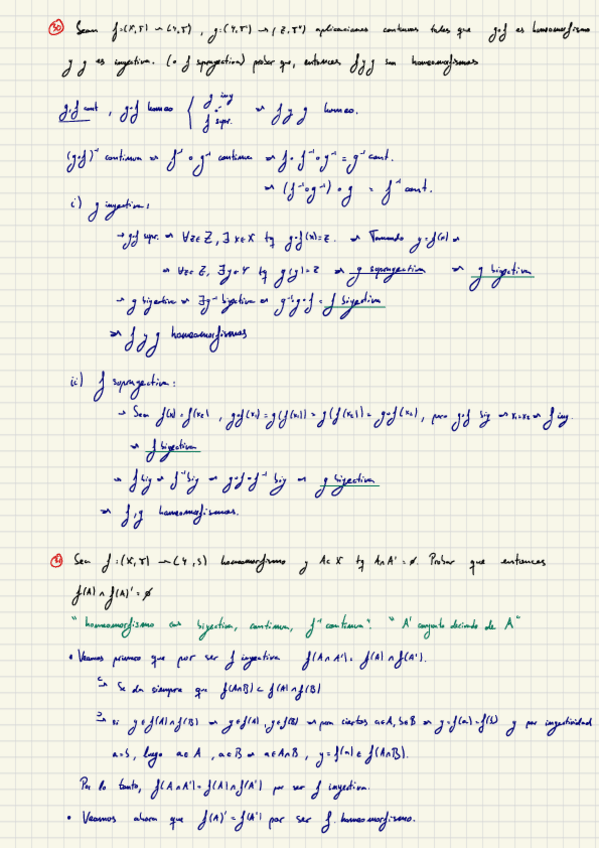 30 Sean f:(X,τ) → (Y,τ'), g:(Y,τ') → (Z,τ'') aplicaciones continuas tales que g∘f es homeomorfismo
y g es inyectiva. (o f suprayectiva) probar que, entonces f y g son homeomorfismos
g,f cont, g∘f homeo { g iny
f supr. ⇒ f y g homeo.
(g∘f)⁻¹ continua ⇒ f⁻¹∘g⁻¹ continua ⇒ f∘f⁻¹∘g⁻¹ = g⁻¹ cont.
⇒ (f⁻¹∘g⁻¹)∘g = f⁻¹ cont.
i) g inyectiva:
→ g∘f supr. ⇒ ∀z∈Z, ∃x∈X tq g∘f(x)=z. ⇒ Tomando y=f(x) ⇒
⇒ ∀z∈Z, ∃y∈Y tq g(y)=z ⇒ g suprayectiva ⇒ g biyectiva
→ g biyectiva ⇒ ∃g⁻¹ biyectiva ⇒ g⁻¹∘g∘f = f biyectiva
⇒ f y g homeomorfismos
ii) f suprayectiva:
→ Sean f(x₁)=f(x₂), g∘f(x₁)=g(f(x₁))=g(f(x₂))=g∘f(x₂), pero g∘f biy ⇒ x₁=x₂ ⇒ f iny.
⇒ f biyectiva
→ f biy ⇒ f⁻¹ biy ⇒ g∘f∘f⁻¹ biy ⇒ g biyectiva
⇒ f,g homeomorfismos.
Sea f:(X,τ) → (Y,S) homeomorfismo y A⊂X tq A∩A'=∅. Probar que entonces
f(A)∩f(A)'=∅
"homeomorfismo ⇔ biyectiva, continua, f⁻¹ continua". "A' conjunto derivado de A"
• Veamos primero que por ser f inyectiva f(A∩A')=f(A)∩f(A').
⊂ Se da siempre que f(A∩B)⊂f(A)∩f(B)
⊃ si y∈f(A)∩f(B) ⇒ y∈f(A), y∈f(B) ⇒ para ciertos a∈A, b∈B ⇒ y=f(a)=f(b) y por inyectividad
a=b, luego a∈A, a∈B ⇒ a∈A∩B, y=f(a)∈f(A∩B).
Por lo tanto, f(A∩A')=f(A)∩f(A') por ser f inyectiva.
• Veamos ahora que f(A)'=f(A') por ser f homeomorfismo.